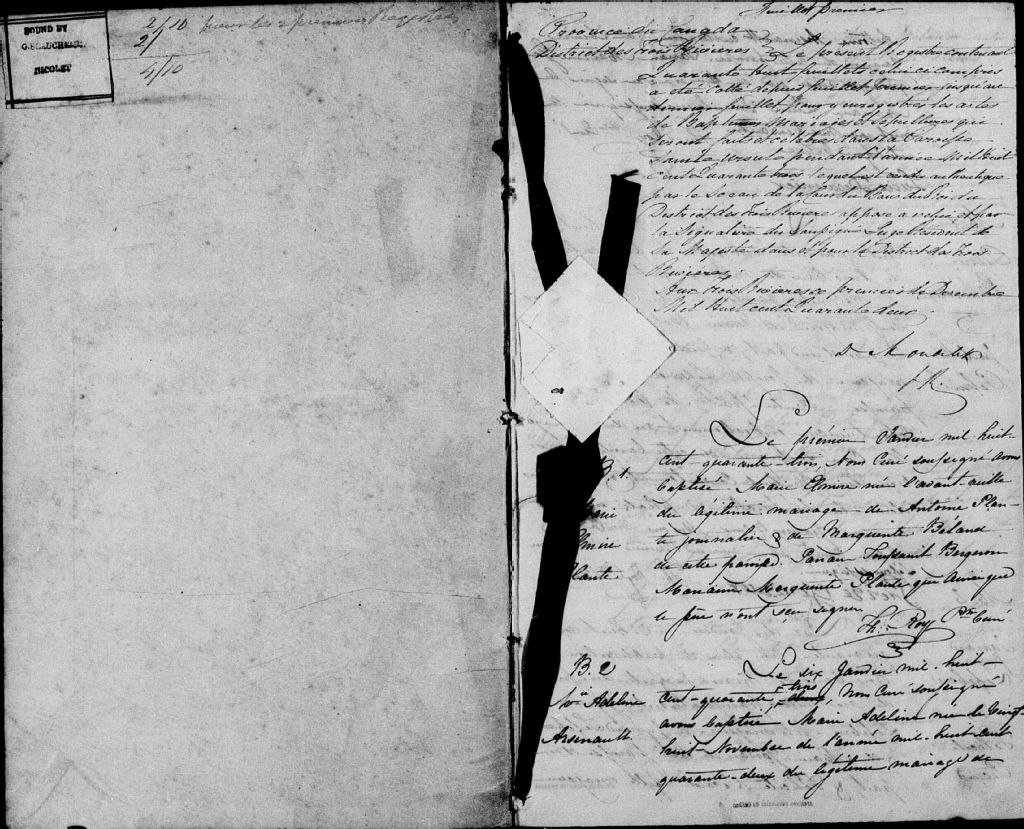 BOUND BY
NICOLET
2/10
2/
4/10
pour les 2 premiers Registres
Feuillet premier
Province du Canada
District des trois Rivières } Le présent Registre contenant
Quarante huit feuillets celui ci compris
a été cotté depuis feuillet premier jusqu'au
feuillet pour y enregistrer les actes
de Baptemes Mariages et sépultures qui
seront faits et célébrés dans la Paroisse
Sainte Ursule pendant l'année Mil huit
Cent Quarante trois lequel est rendu authentique
par le Sceau de la Cour du Banc du Roi du
District des Trois Rivières apposé a celui et par
la Signature du Soussigné Juge Résident de
Sa Majesté dans et pour le District des trois
Rivières.
Aux trois Rivières ce premier de Decembre
Mil huit cent Quarante deux
D. Mondelet
J. R.
B. 1.
Marie
Elmire
Plante
Le prémier Janvier mil huit-
cent-quarante-trois, Nous Curé soussigné avons
baptisé Marie Elmire née l'avant-veille
du légitime mariage de Antoine Plan-
te journalier & de Marguerite Beland
de cette paroisse. Parain Toussaint Bergeron
Maraine Marguerite Plante qui ainsi que
le père n'ont sçu signer.
Th. Roy Ptre Curé
B. 2
Mie Adeline
Arsenault
Le six Janvier mil-huit-
cent-quarante-trois, Nous Curé soussigné
avons baptisé Marie Adeline née le Vingt
huit-Novembre de l'année mil-huit-cent
quarante-deux du légitime mariage de